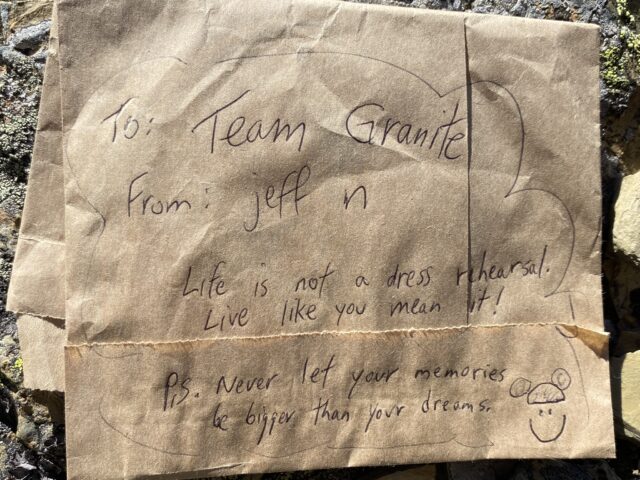 To: Team Granite
From: jeff n
Life is not a dress rehearsal.
Live like you mean it!
P.S. Never let your memories
be bigger than your dreams.